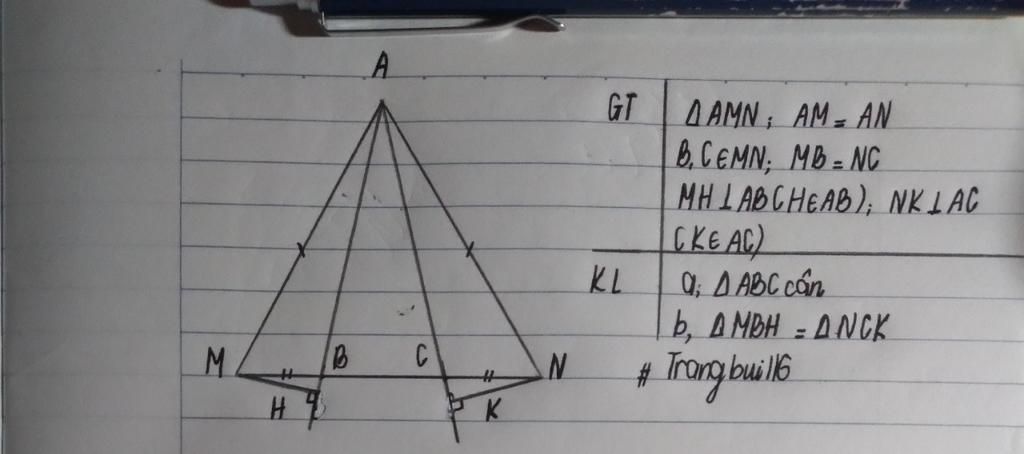 A
GT
ΔAMN; AM = AN
B, C ∈ MN; MB = NC
MH ⊥ AB (H ∈ AB); NK ⊥ AC
(K ∈ AC)
KL
a; ΔABC cân
b, ΔMBH = ΔNCK
# Trangbui116
M
B
C
N
H
K